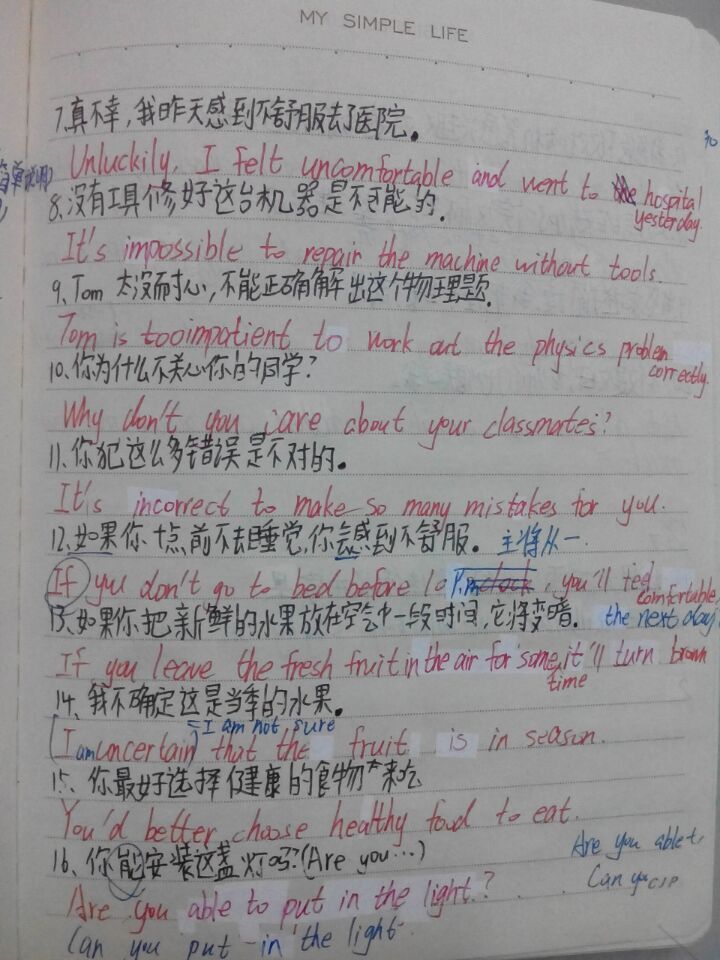 MY SIMPLE LIFE
7.真不幸,我昨天感到不舒服去了医院。
Unluckily, I felt uncomfortable and went to hospital yesterday.
8.没有工具修好这台机器是不可能的.
It's impossible to repair the machine without tools.
9、Tom 太没耐心,不能正确解出这个物理题.
Tom is too impatient to work out the physics problem correctly.
10、你为什么不关心你的同学?
Why don't you care about your classmates?
11、你犯这么多错误是不对的。
It's incorrect to make so many mistakes for you.
12、如果你十点前不去睡觉,你会感到不舒服。 主将从一.
If you don't go to bed before 10 p.m, you'll feel comfortable the next day
13、如果你把新鲜的水果放在空气中一段时间,它将变暗.
If you leave the fresh fruit in the air for some time, it'll turn brown
14、我不确定这是当季的水果。
I am not sure
(I am uncertain) that the fruit is in season.
15、你最好选择健康的食物来吃
You'd better choose healthy food to eat.
16、你能安装这盏灯吗?(Are you...)
Are you able t
Can you
Are you able to put in the light?
Can you put in the light